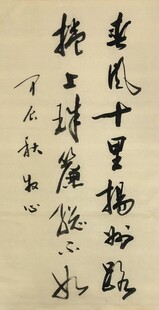 春風十里揚州路
捲上珠簾總不如
辰秋 牧心